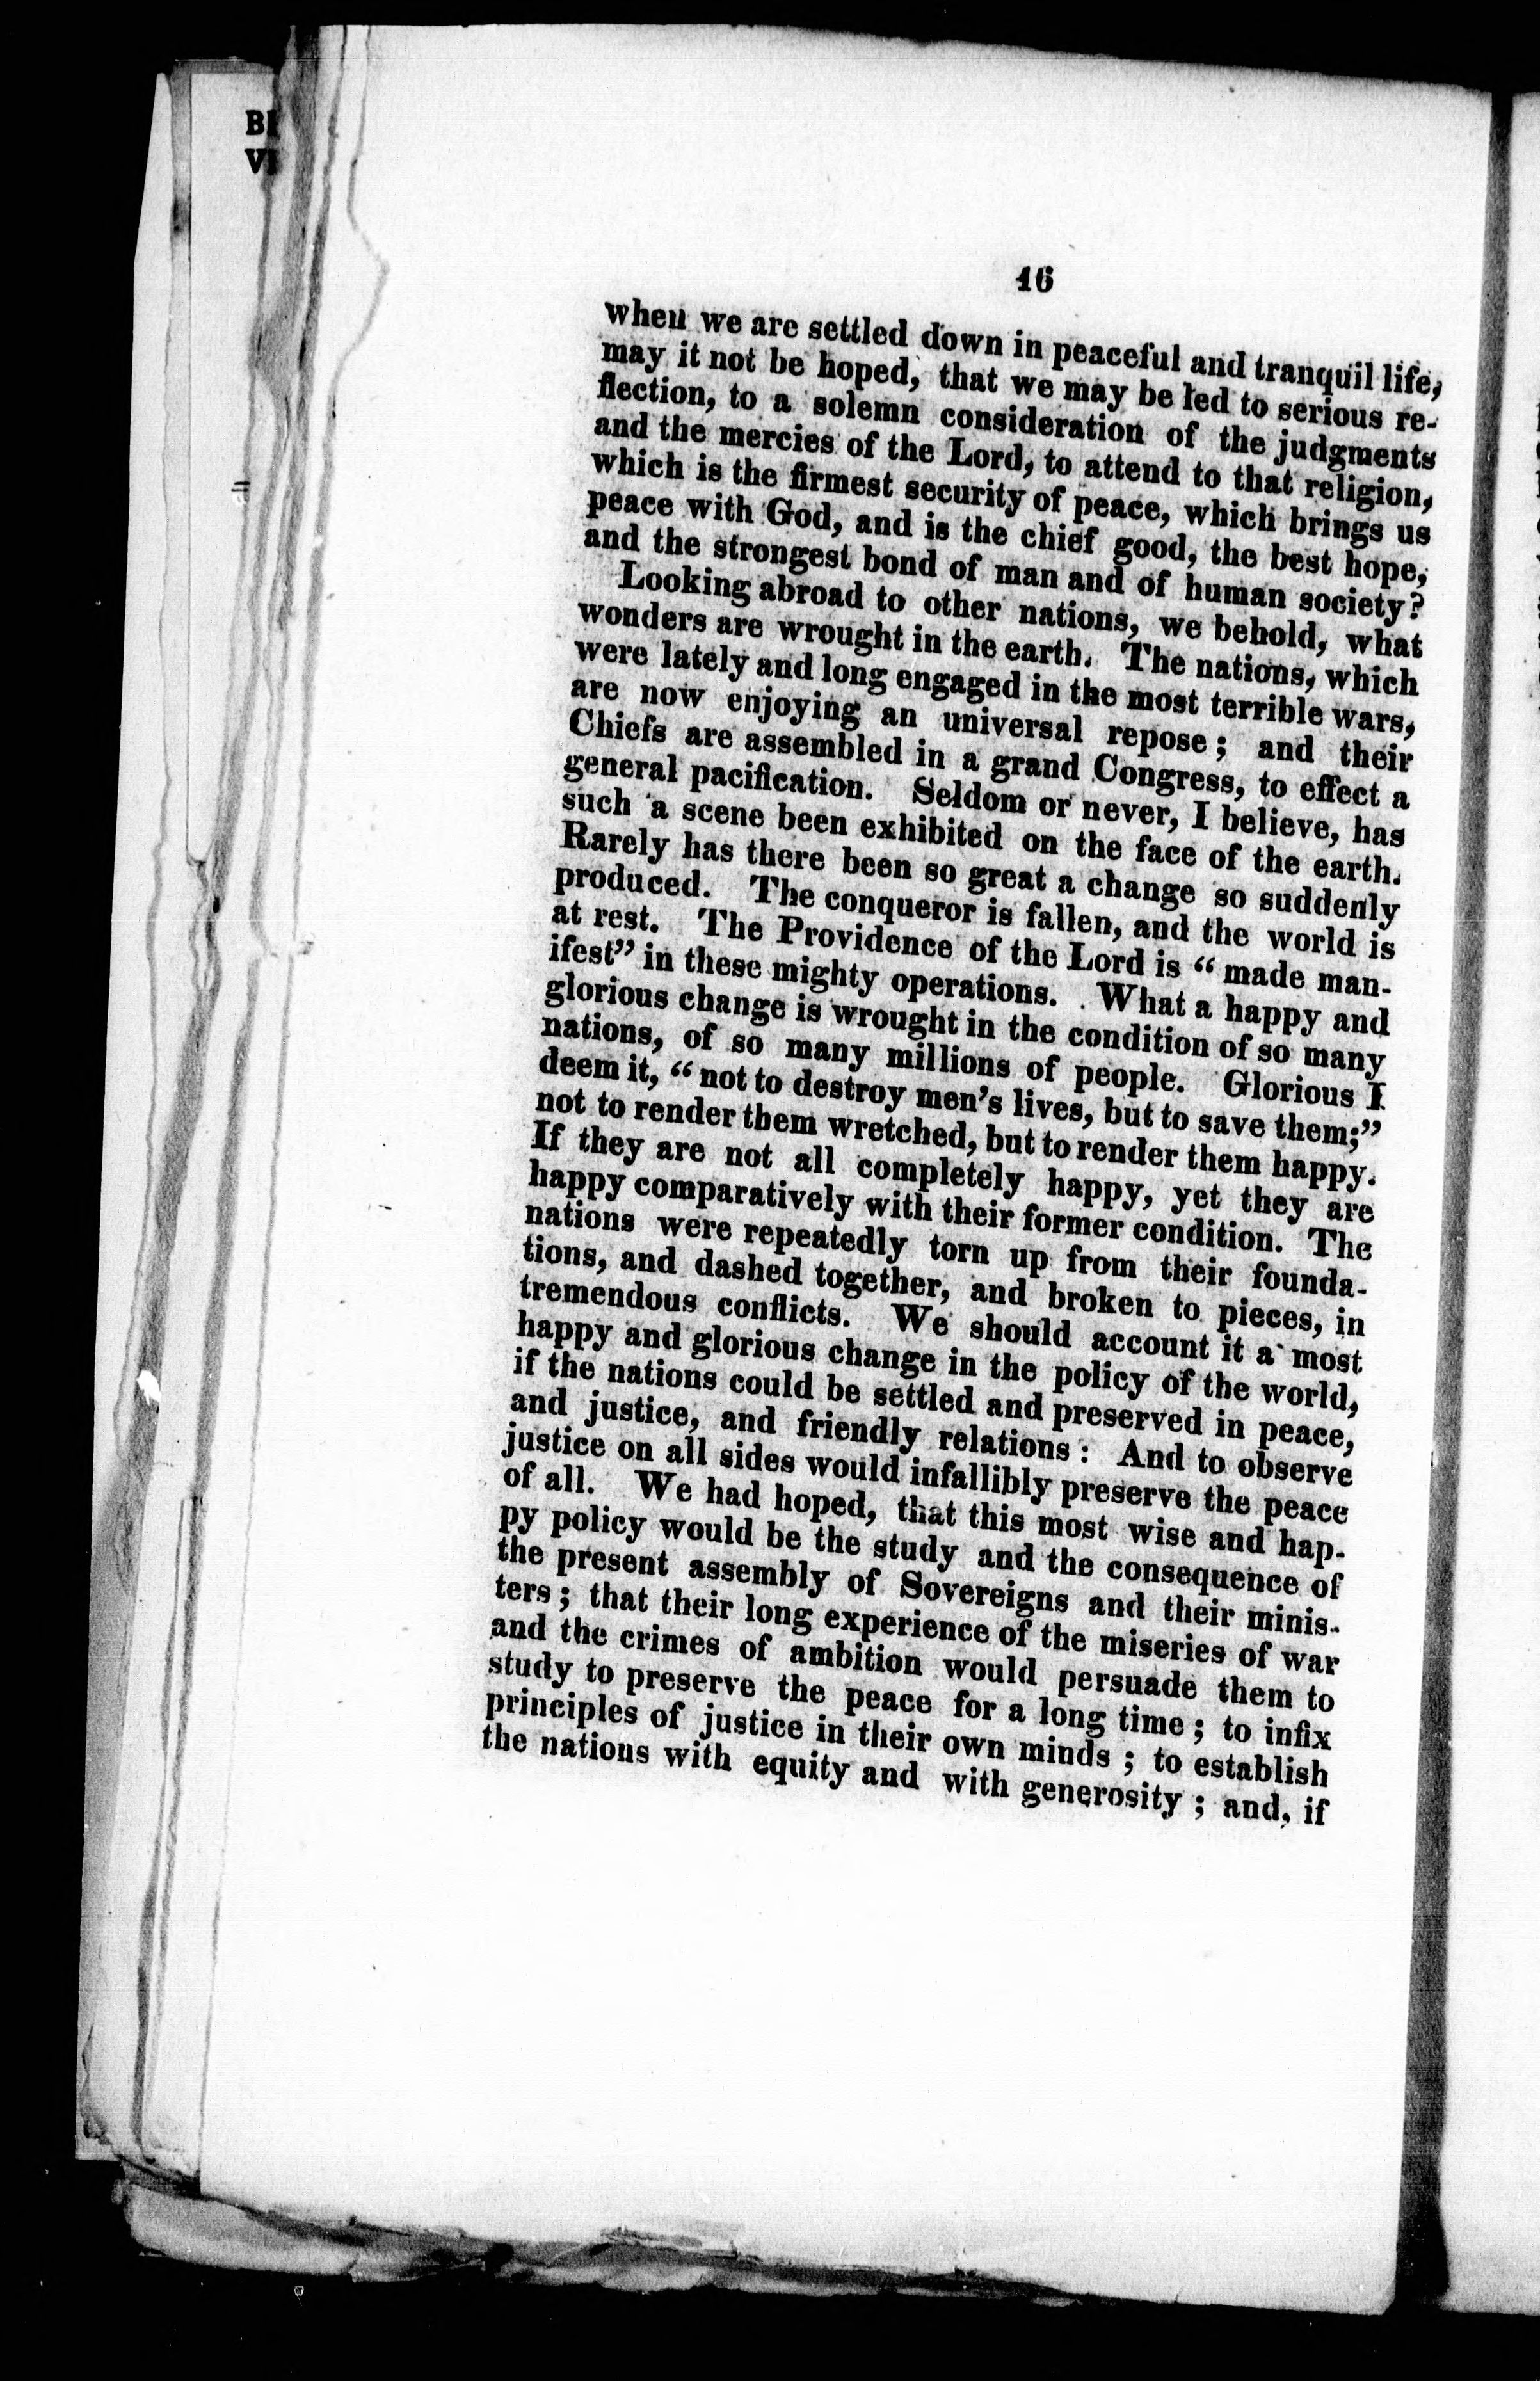 BI
VI
16
when we are settled down in peaceful and tranquil life,
may it not be hoped, that we may be led to serious re-
flection, to a solemn consideration of the judgments
and the mercies of the Lord, to attend to that religion,
which is the firmest security of peace, which brings us
peace with God, and is the chief good, the best hope,
and the strongest bond of man and of human society?
Looking abroad to other nations, we behold, what
wonders are wrought in the earth. The nations, which
were lately and long engaged in the most terrible wars,
are now enjoying an universal repose; and their
Chiefs are assembled in a grand Congress, to effect a
general pacification. Seldom or never, I believe, has
such a scene been exhibited on the face of the earth.
Rarely has there been so great a change so suddenly
produced. The conqueror is fallen, and the world is
at rest. The Providence of the Lord is "made man-
ifest" in these mighty operations. What a happy and
glorious change is wrought in the condition of so many
nations, of so many millions of people. Glorious I
deem it, "not to destroy men's lives, but to save them;"
not to render them wretched, but to render them happy.
If they are not all completely happy, yet they are
happy comparatively with their former condition. The
nations were repeatedly torn up from their founda-
tions, and dashed together, and broken to pieces, in
tremendous conflicts. We should account it a most
happy and glorious change in the policy of the world,
if the nations could be settled and preserved in peace,
and justice, and friendly relations: And to observe
justice on all sides would infallibly preserve the peace
of all. We had hoped, that this most wise and hap-
py policy would be the study and the consequence of
the present assembly of Sovereigns and their minis-
ters; that their long experience of the miseries of war
and the crimes of ambition would persuade them to
study to preserve the peace for a long time; to infix
principles of justice in their own minds; to establish
the nations with equity and with generosity; and, if